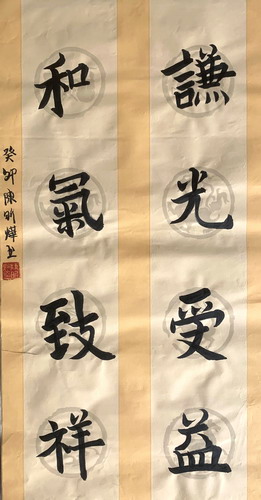 謙光受益
和氣致祥
癸卯陳明燁書